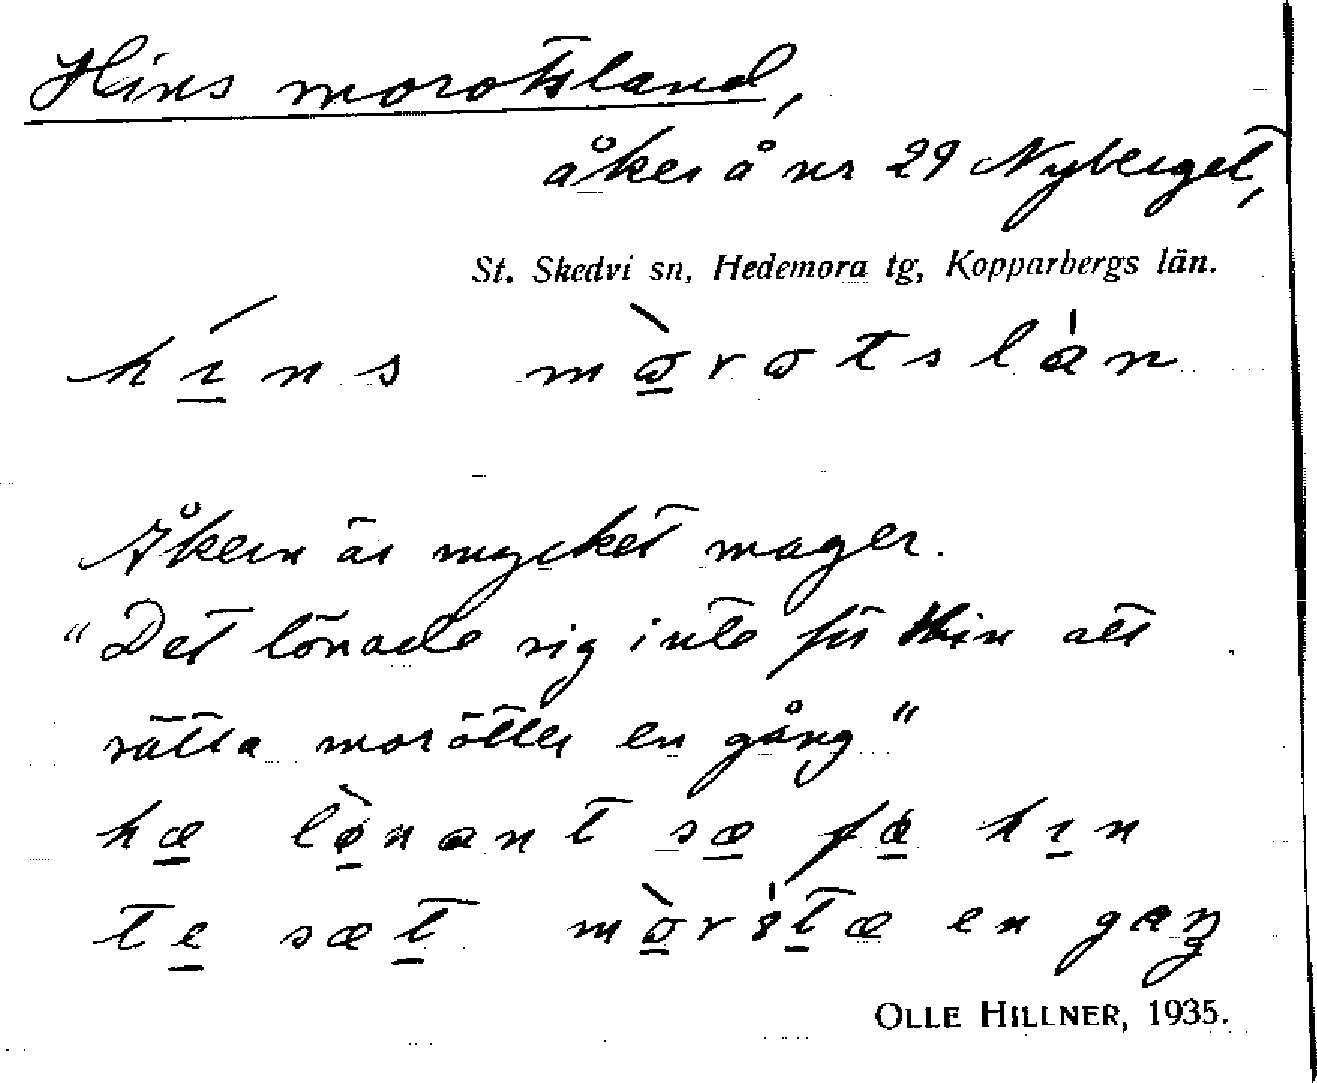 Hins morotsland,
åker å nr 29 Nyberget,
St. Skedvi sn, Hedemora tg, Kopparbergs län.
hı́ns mòrotslån
Åkern är mycket mager.
"Det lönade sig inte för Hin att
sätta morötter en gång"
hæ lø̀nant sæ fa hın
te sæt mòrøtæ en gaŋ
OLLE HILLNER, 1935.